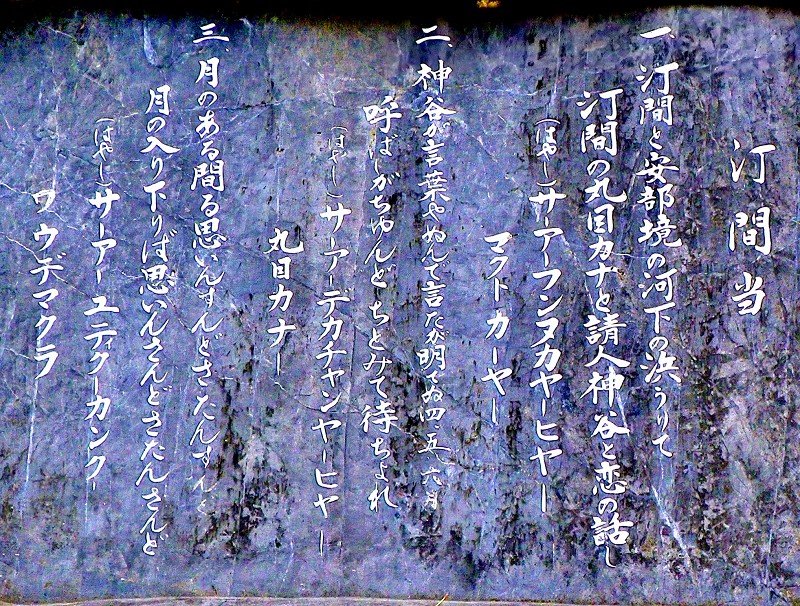 汀間当
一、汀間と安部境の河下の浜うりて
汀間の丸目カナと請人神谷と恋の話し
(はやし)サーアーフンヌカヤーヒヤー
マクトカーヤー
二、神谷が言葉やぬんで言たが明きぬ四、五、六月
呼ばしがちゆんどちとみて待ちよれ
(はやし)サーアーデカチャンヤーヒヤー
丸目カナー
三、月のある間る思いんすんどさたんすんど
月の入り下りば思いんさんどさたんさんど
(はやし)サーアーユティクーカンクー
ワウデマクラ